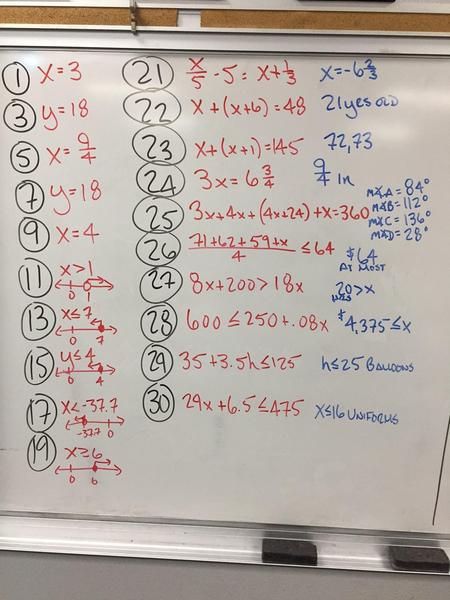 1 x = 3
3 y = 18
5 x = 9/4
7 y = 18
9 x = 4
11 x > 1
0 1
13 x ≤ 7
0 7
15 y ≤ 4
0 4
17 x < -37.7
-37.7 0
19 x ≥ 6
0 6
21 x/5 - 5 = x + 1/3 x = -6 2/3
22 x + (x+6) = 48 21 yrs old
23 x + (x+1) = 145 72, 73
24 3x = 6 3/4 9/4 in
25 3x + 4x + (4x+24) + x = 360
m∡A = 84°
m∡B = 112°
m∡C = 136°
m∡D = 28°
26 71+62+59+x/4 ≤ 64 $64
AT MOST
27 8x + 200 > 18x 20 > x
28 600 ≤ 250 + .08x $4,375 ≤ x
29 35 + 3.5h ≤ 125 h ≤ 25 BALLOONS
30 29x + 6.5 ≤ 475 x ≤ 16 UNIFORMS